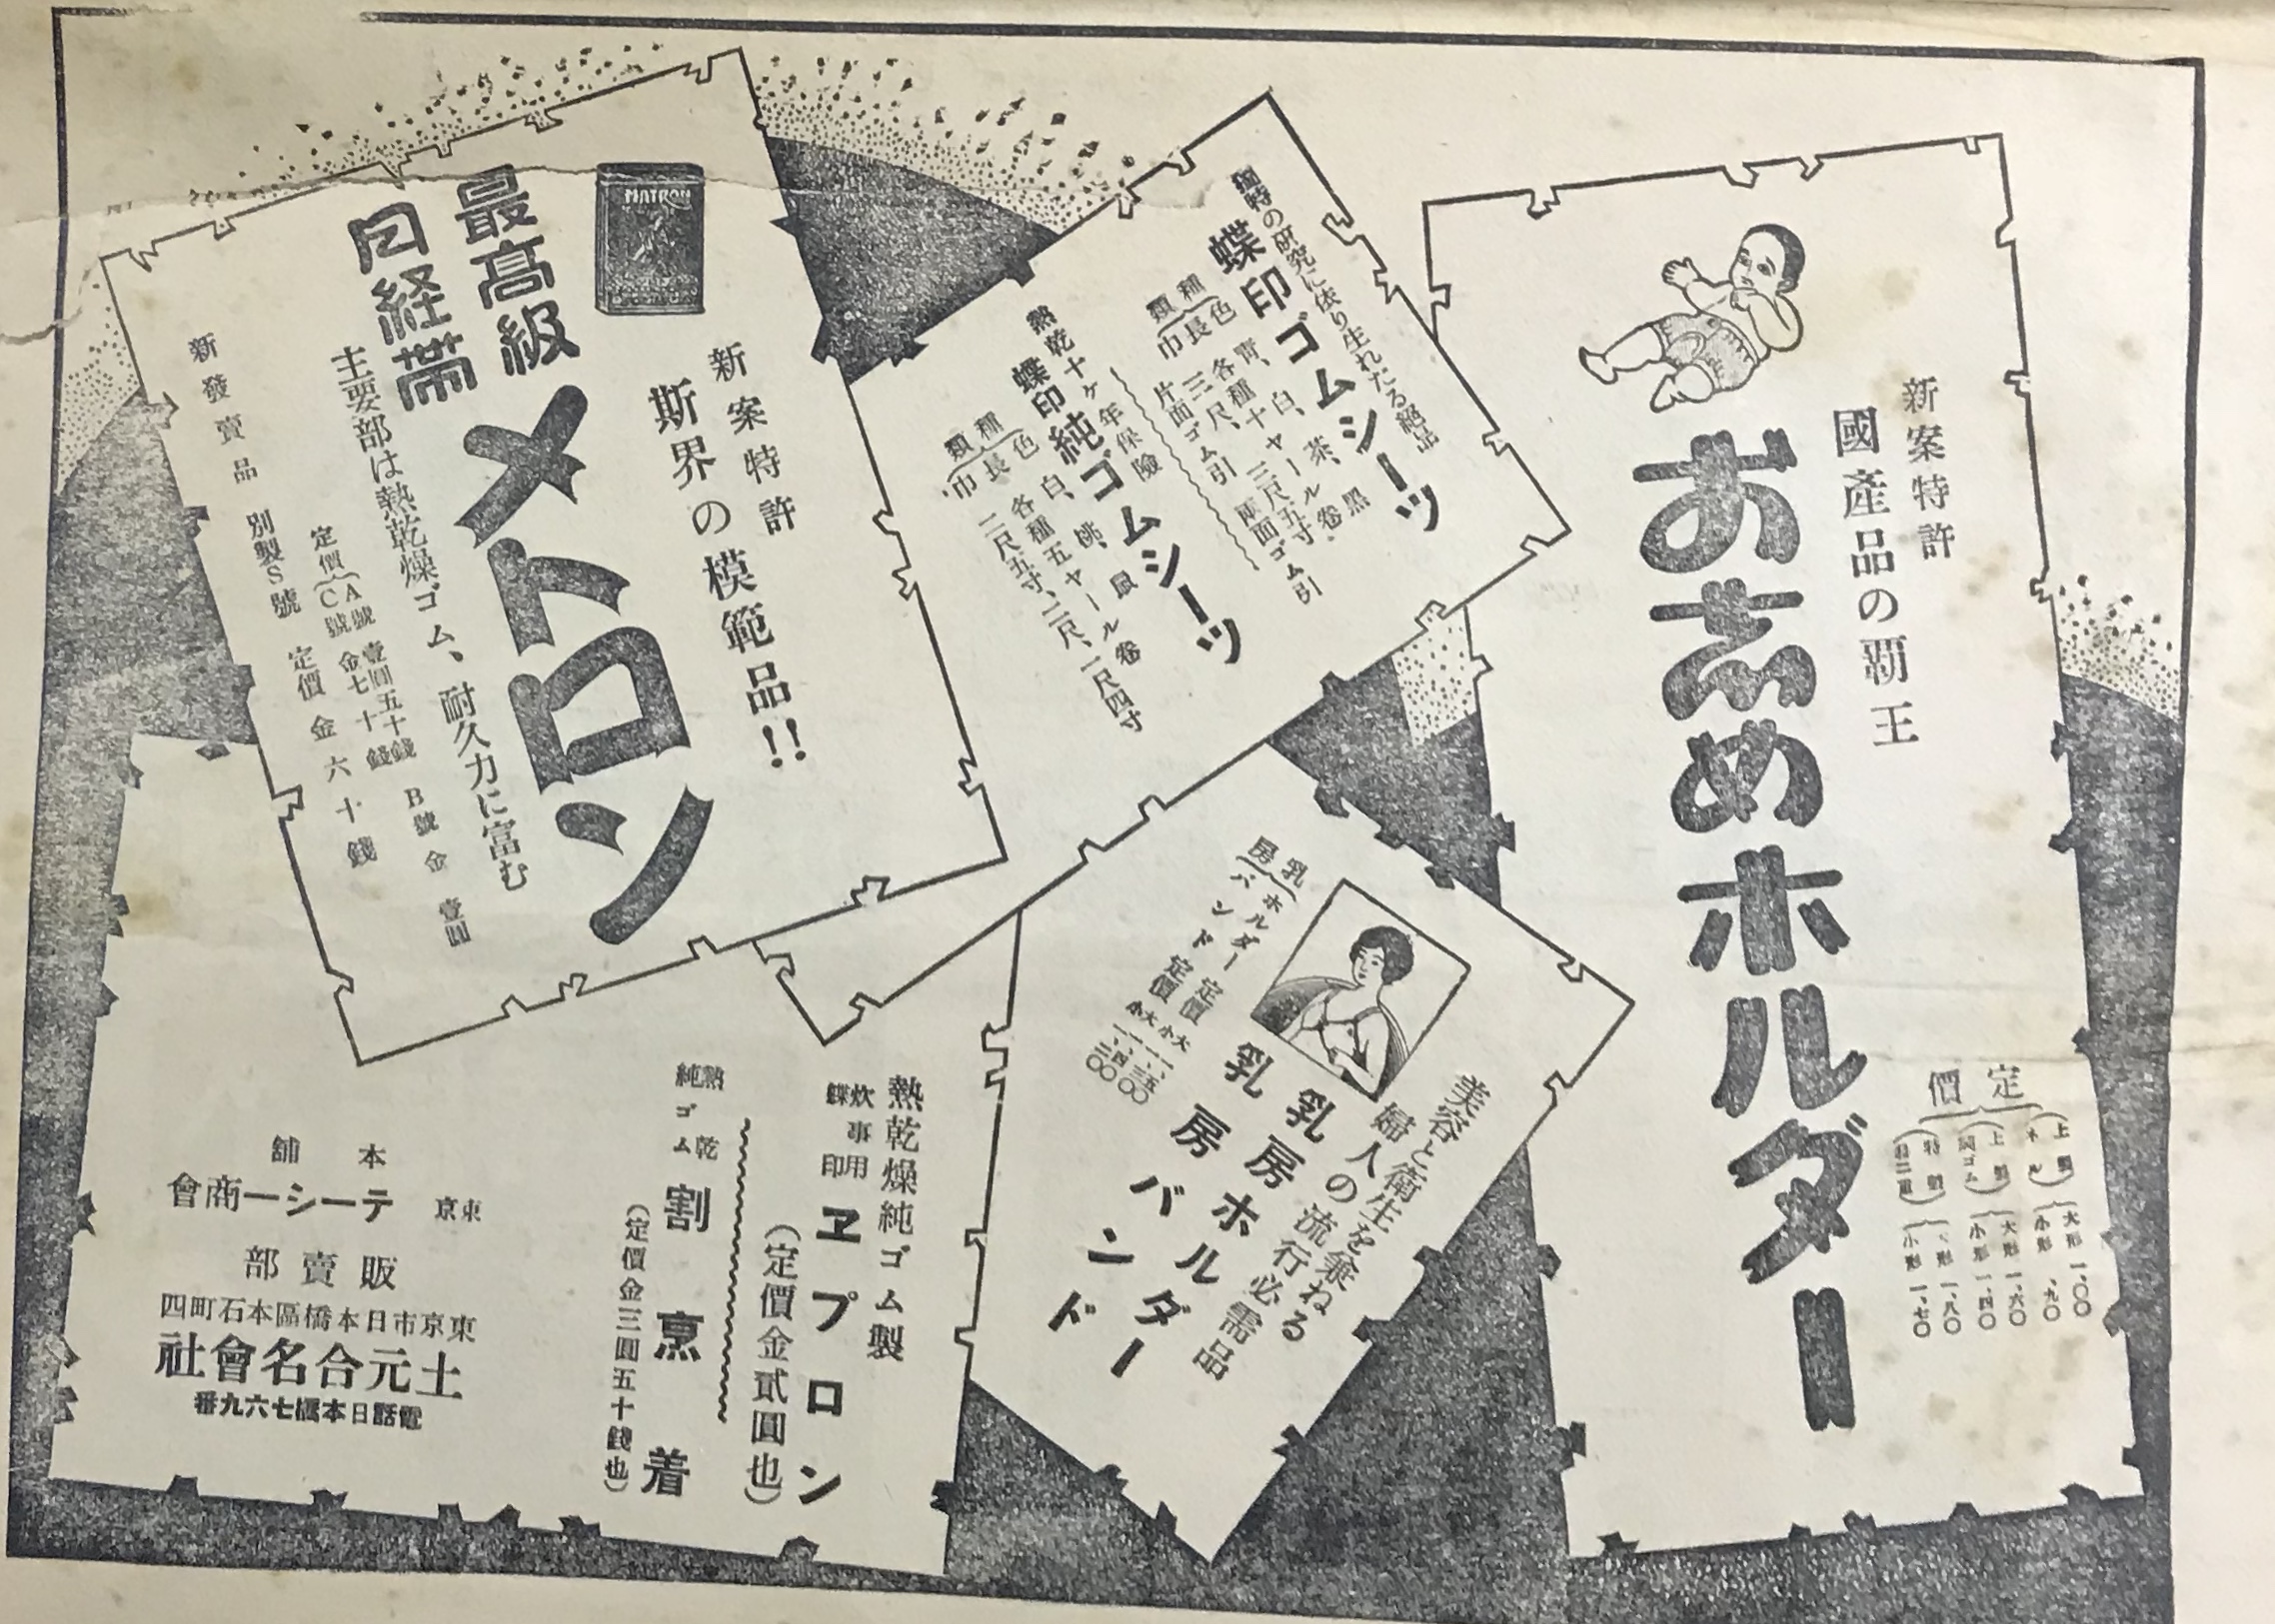 新案特許
國産品の覇王
おしめホルダー
定價
大形 一、〇〇
小形 、九〇
大形 一、六〇
小形 一、四〇
形 一、八〇
小形 一、七〇
獨特の研究に依り生れたる絶品
蝶印ゴムシーツ
種類
色 青、白、茶、黒
長 各種十ヤール卷
巾 三尺、三尺五寸
片面ゴム引 兩面ゴム引
熱乾十ヶ年保險
蝶印純ゴムシーツ
種類
色 白、桃、鼠
長 各種五ヤール卷
巾 二尺五寸、二尺、一尺四寸
美容と衛生を兼ねる
婦人の流行必需品
乳房ホルダー
乳房バンド
乳房
ホルダー 定價 大
小
バンド 定價 大 一、四〇
小 一、二〇
MATRON
新案特許
斯界の模範品!!
最高級
月経帯
メトロン
主要部は熱乾燥ゴム、耐久力に富む
定價
A號 壹圓五十錢 B號 金壹圓
C號 金七十錢
新發賣品 別製S號 定價金六十錢
熱乾燥純ゴム製
炊事用
蝶印
ヱプロン
(定價金貳圓也)
熱乾
純ゴム
割烹着
(定價金三圓五十錢也)
本舗
東京 テーシー商會
販賣部
東京市日本橋區本石町四
土元合名會社
電話日本橋七六九番